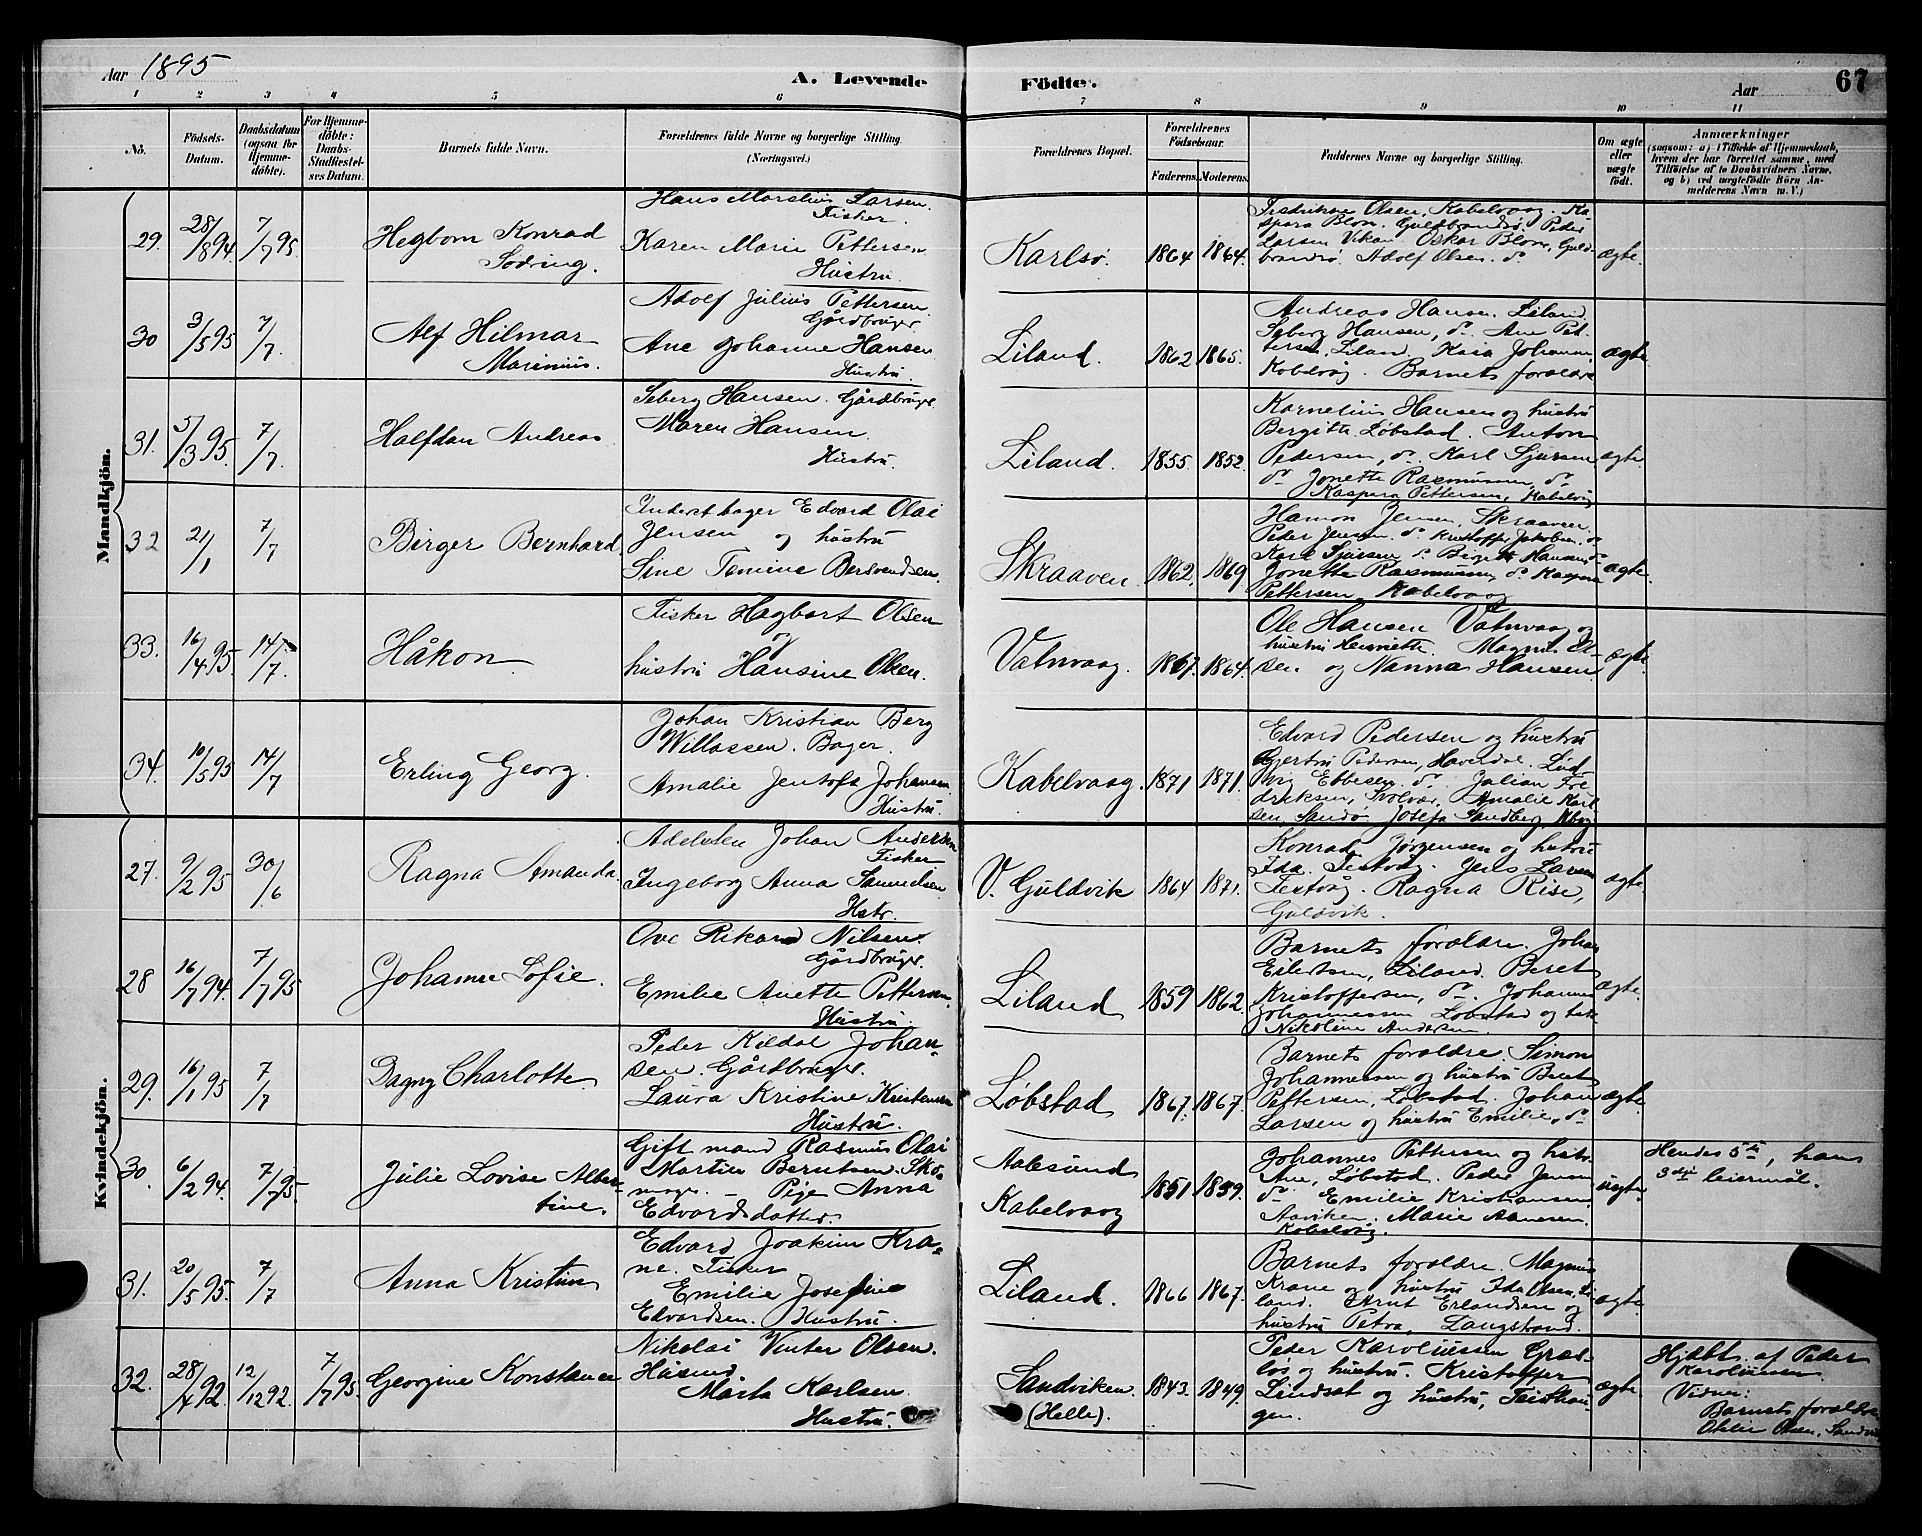 Aar 1895
A. Levende
Fødte.
Aar
67
1 2 3 4 5 6 7 8 9 10 11
No.
Fødsels-Datum.
Daabsdatum (ogsaa for Hjemmedøbte).
For Hjemmedøbte: Daabs-Stadfæstelses Datum.
Barnets fulde Navn.
Forældrenes fulde Navne og borgerlige Stilling (Næringsvei.)
Forældrenes Bopæl.
Forældrenes Fødselsaar.
Faderens. Moderens.
Faddernes Navne og borgerlige Stilling.
Om ægte eller uægte født.
Anmærkninger
(saasom: a) i Tilfælde af Hjemmedaab, hvem der har forrettet samme, med Tilføielse af to Daabsvidners Navne, og b) ved uægtefødte Børn Anmelderens Navn m. V.)
Mandkjön.
29. 28/8 94 7/7 95.
Hegbom Konrad
Sodring.
Hans Marelius Larsen.
Fisker.
Karen Marie Pettersen
Hustru.
Karlsø. 1864 1864.
Fredrikke Olsen, Kabelvaag. Ka-
spara Blom, Guldbrandsø. Peder
Larsen Vikan. Oskar Blom, Guld-
brandsø. Adolf Olsen. do
ægte.
30 3/5 95 7/7.
Alf Hilmar
Marinius.
Adolf Julius Pettersen.
Gårdbruger.
Ane Johanne Hansen
Hustru
Liland. 1862 1865.
Andreas Hansen. Liland.
Seberg Hansen, do. Ane Pet-
tersen, Liland. Kaia Johannes
Kabelvåg. Barnets forældre
ægte
31. 5/3 95. 7/7.
Halfdan Andreas
Seberg Hansen. Gårdbruger.
Maren Hansen.
Hustru.
Liland. 1855 1852.
Kornelius Hansen og hustru
Bergitte Løbstad. Anton
Pedersen, do. Karl Sjursen
do Jonette Rasmussen, do.
Kaspara Pettersen, Kabelvåg
ægte.
32 21/1 7/7
Birger Bernhard
Inderstbager Edvard Olai
Jensen og hustru
Sine Tomine Bersvendsen.
Skraaven 1862, 1869
Hamon Jensen, Skraaven.
Peder Jensen. do Kristoffer Jakobsen. do
Karl Sjursen do Birgitte Hansen do
Jonette Rasmussen, do Kaspara
Pettersen, Kabelvaag
ægte.
33. 16/4 95. 14/7.
Håkon
Fisker Hagbart Olsen
og
hustru Hansine Olsen.
Vatnvaag. 1867. 1864.
Ole Hansen Vatnvaag og
hustru Henriette. Magnus Ol-
sen og Nanna Hansen
ægte.
34. 10/5 95 14/7
Erling Georg.
Johan Kristian Berg
Willassen. Bager.
Amalie Jentoft Johansen
Hustru.
Kabelvaag. 1871 1871.
Edvard Pedersen og hustru
Gjertru Pedersen, Haversdal. Lud-
vig Ebbesen do. Julian Fre-
driksen, Svolvær. Amalie Karl-
sen, Sandø. Josefa Sandberg
Kvindekjön.
27. 9/2 95 30/6
Ragna Amanda.
Adelsten Johan Andersen
Fisker
Ingeborg Anna Samuelsen.
Hstr.
V. Guldvik 1864 1871.
Konrad Jørgensen og hustru
Ida. Festvåg. Jens Larsen
Festvåg. Ragna Rise,
Guldvik.
ægte
28 16/7 94. 7/7 95
Johanne Sofie.
Ove Rikard Nilsen.
Gårdbruger.
Emilie Anette Pettersen.
Hustru.
Liland 1859 1862.
Barnets forældre. Johan
Eilertsen, Liland. Beret
Kristoffersen, do. Johannes
Johannessen Løbstad og
Nikoline Andersen.
ægte.
29. 16/1 95 7/7
Dagny Charlotte
Peder Kildal Johan-
sen. Gårdbruger.
Laura Kristine Kristensen
Hustru.
Løbstad 1867. 1867.
Barnets forældre. Simon
Johannessen og hustru Beret
Pettersen, Løbstad. Johan
Larsen og hustru Emilie, do
ægte.
30. 6/2 94. 7/7 95.
Julie Lovise Alber-
tine.
Gift mand Rasmus Olai
Martin Berntsen. Sko-
mager. – Pige Anna
Edvardsdatter.
Aalesund
Kabelvaag
1851 1859.
Johannes Pettersen og hstr.
Ane, Løbstad. Peder Jensen
do. Emilie Kristiansen
Aaviken. Marie Aanesen.
Kabelvåg.
uægte.
Hendes 5te, hans
3die leiermål.
31. 20/5 95. 7/7
Anna Kristine
Edvard Joakim Kra-
ne. Fisker
Emilie Josefine
Edvardsen. Hustru.
Liland. 1866 1867.
Barnets forældre. Magnus
Krane og hustru Ida Olsen, Li-
land. Arnt Erlandsen og
hustru Petra, Langstrand.
ægte
32. 28/4 92. 12/12 92. 7/7 95.
Georgine Konstance
Nikolai Vinter Olsen.
Husmd.
Marta Karlsen.
Hustru.
Sandviken.
(Helle).
1843. 1849.
Peder Karoliussen Græs-
løs og hustru. Kristoffer
Lindset og hustru, Teisthau-
gen.
ægte.
Hjdbt. af Peder
Karoliussen.
Vidner:
Barnets forældre.
Olsen, Sandv.